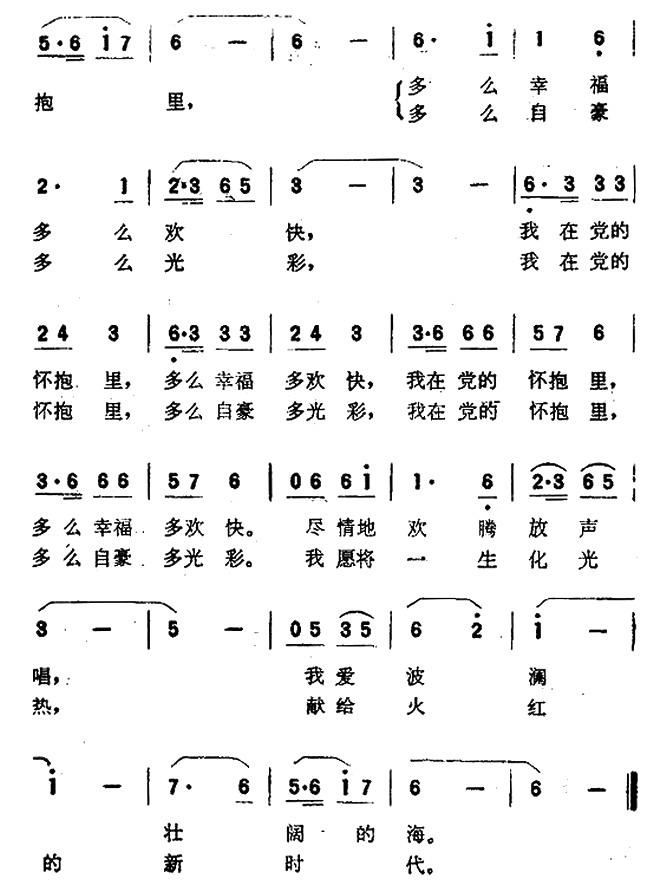 5·6 i 7 | 6 — | 6 — | 6· i | 1 6 |
抱 里， 多 么 幸 福
多 么 自 豪
2· 1 | 2·3 6 5 | 3 — | 3 — | 6·3 3 3 |
多 么 欢 快， 我 在 党的
多 么 光 彩， 我 在 党的
2 4 3 | 6·3 3 3 | 2 4 3 | 3·6 6 6 | 5 7 6 |
怀抱 里， 多么 幸福 多欢 快， 我在 党的 怀抱 里，
怀抱 里， 多么 自豪 多光 彩， 我在 党的 怀抱 里，
3·6 6 6 | 5 7 6 | 0 6 6 i | 1· 6 | 2·3 6 5 |
多么 幸福 多欢 快。 尽 情地 欢 腾 放 声
多么 自豪 多光 彩。 我 愿将 一 生 化 光
3 — | 5 — | 0 5 3 5 | 6 2 | i — |
唱， 我 爱 波 澜
热， 献 给 火 红
i — | 7· 6 | 5·6 i 7 | 6 — | 6 — ‖
壮 阔 的 海。
的 新 时 代。